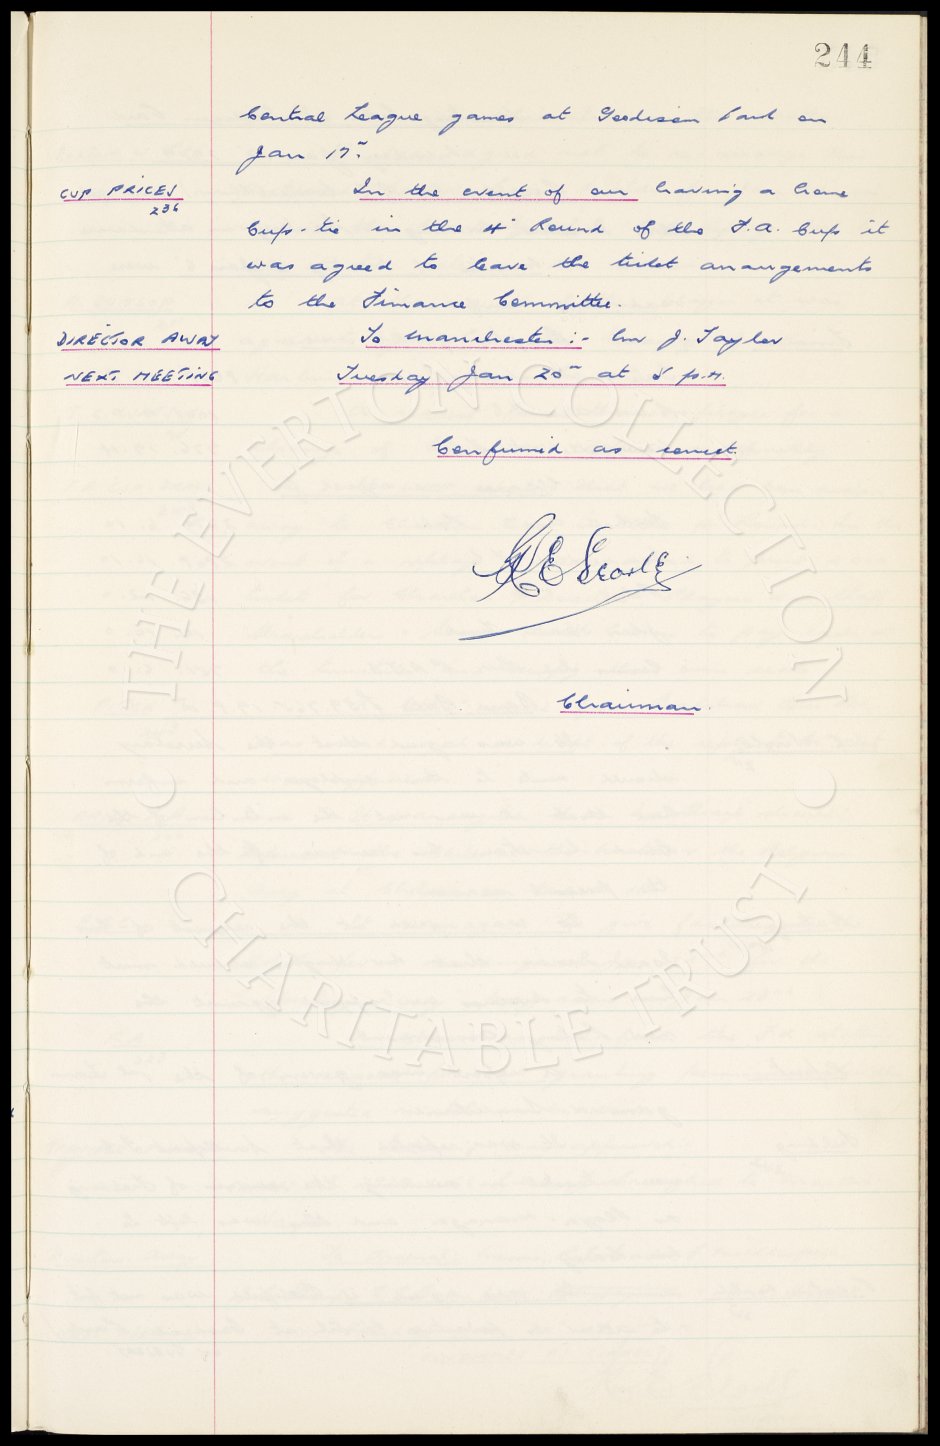 244
Central League games at Goodison Park on
Jan 17th.
CUP PRICES
236
In the event of our having a home
Cup-tie in the 4th Round of the F.A. Cup it
was agreed to leave the ticket arrangements
to the Finance Committee.
DIRECTOR AWAY
To Manchester :- Mr J. Taylor
NEXT MEETING
Tuesday Jan 20th at 5 p.m.
Confirmed as correct.
E Searle
Chairman.
THE EVERTON COLLECTION
CHARITABLE TRUST